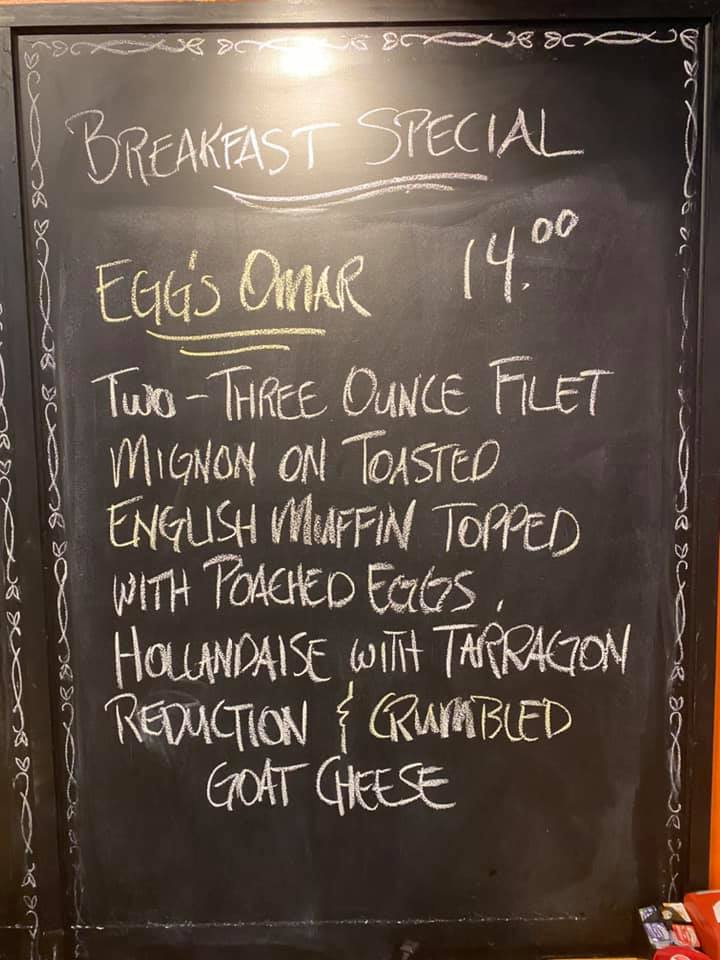 BREAKFAST SPECIAL
EGG'S OMAR 14.00
TWO-THREE OUNCE FILET
MIGNON ON TOASTED
ENGLISH MUFFIN TOPPED
WITH POACHED EGGS,
HOLLANDAISE WITH TARRAGON
REDUCTION & CRUMBLED
GOAT CHEESE